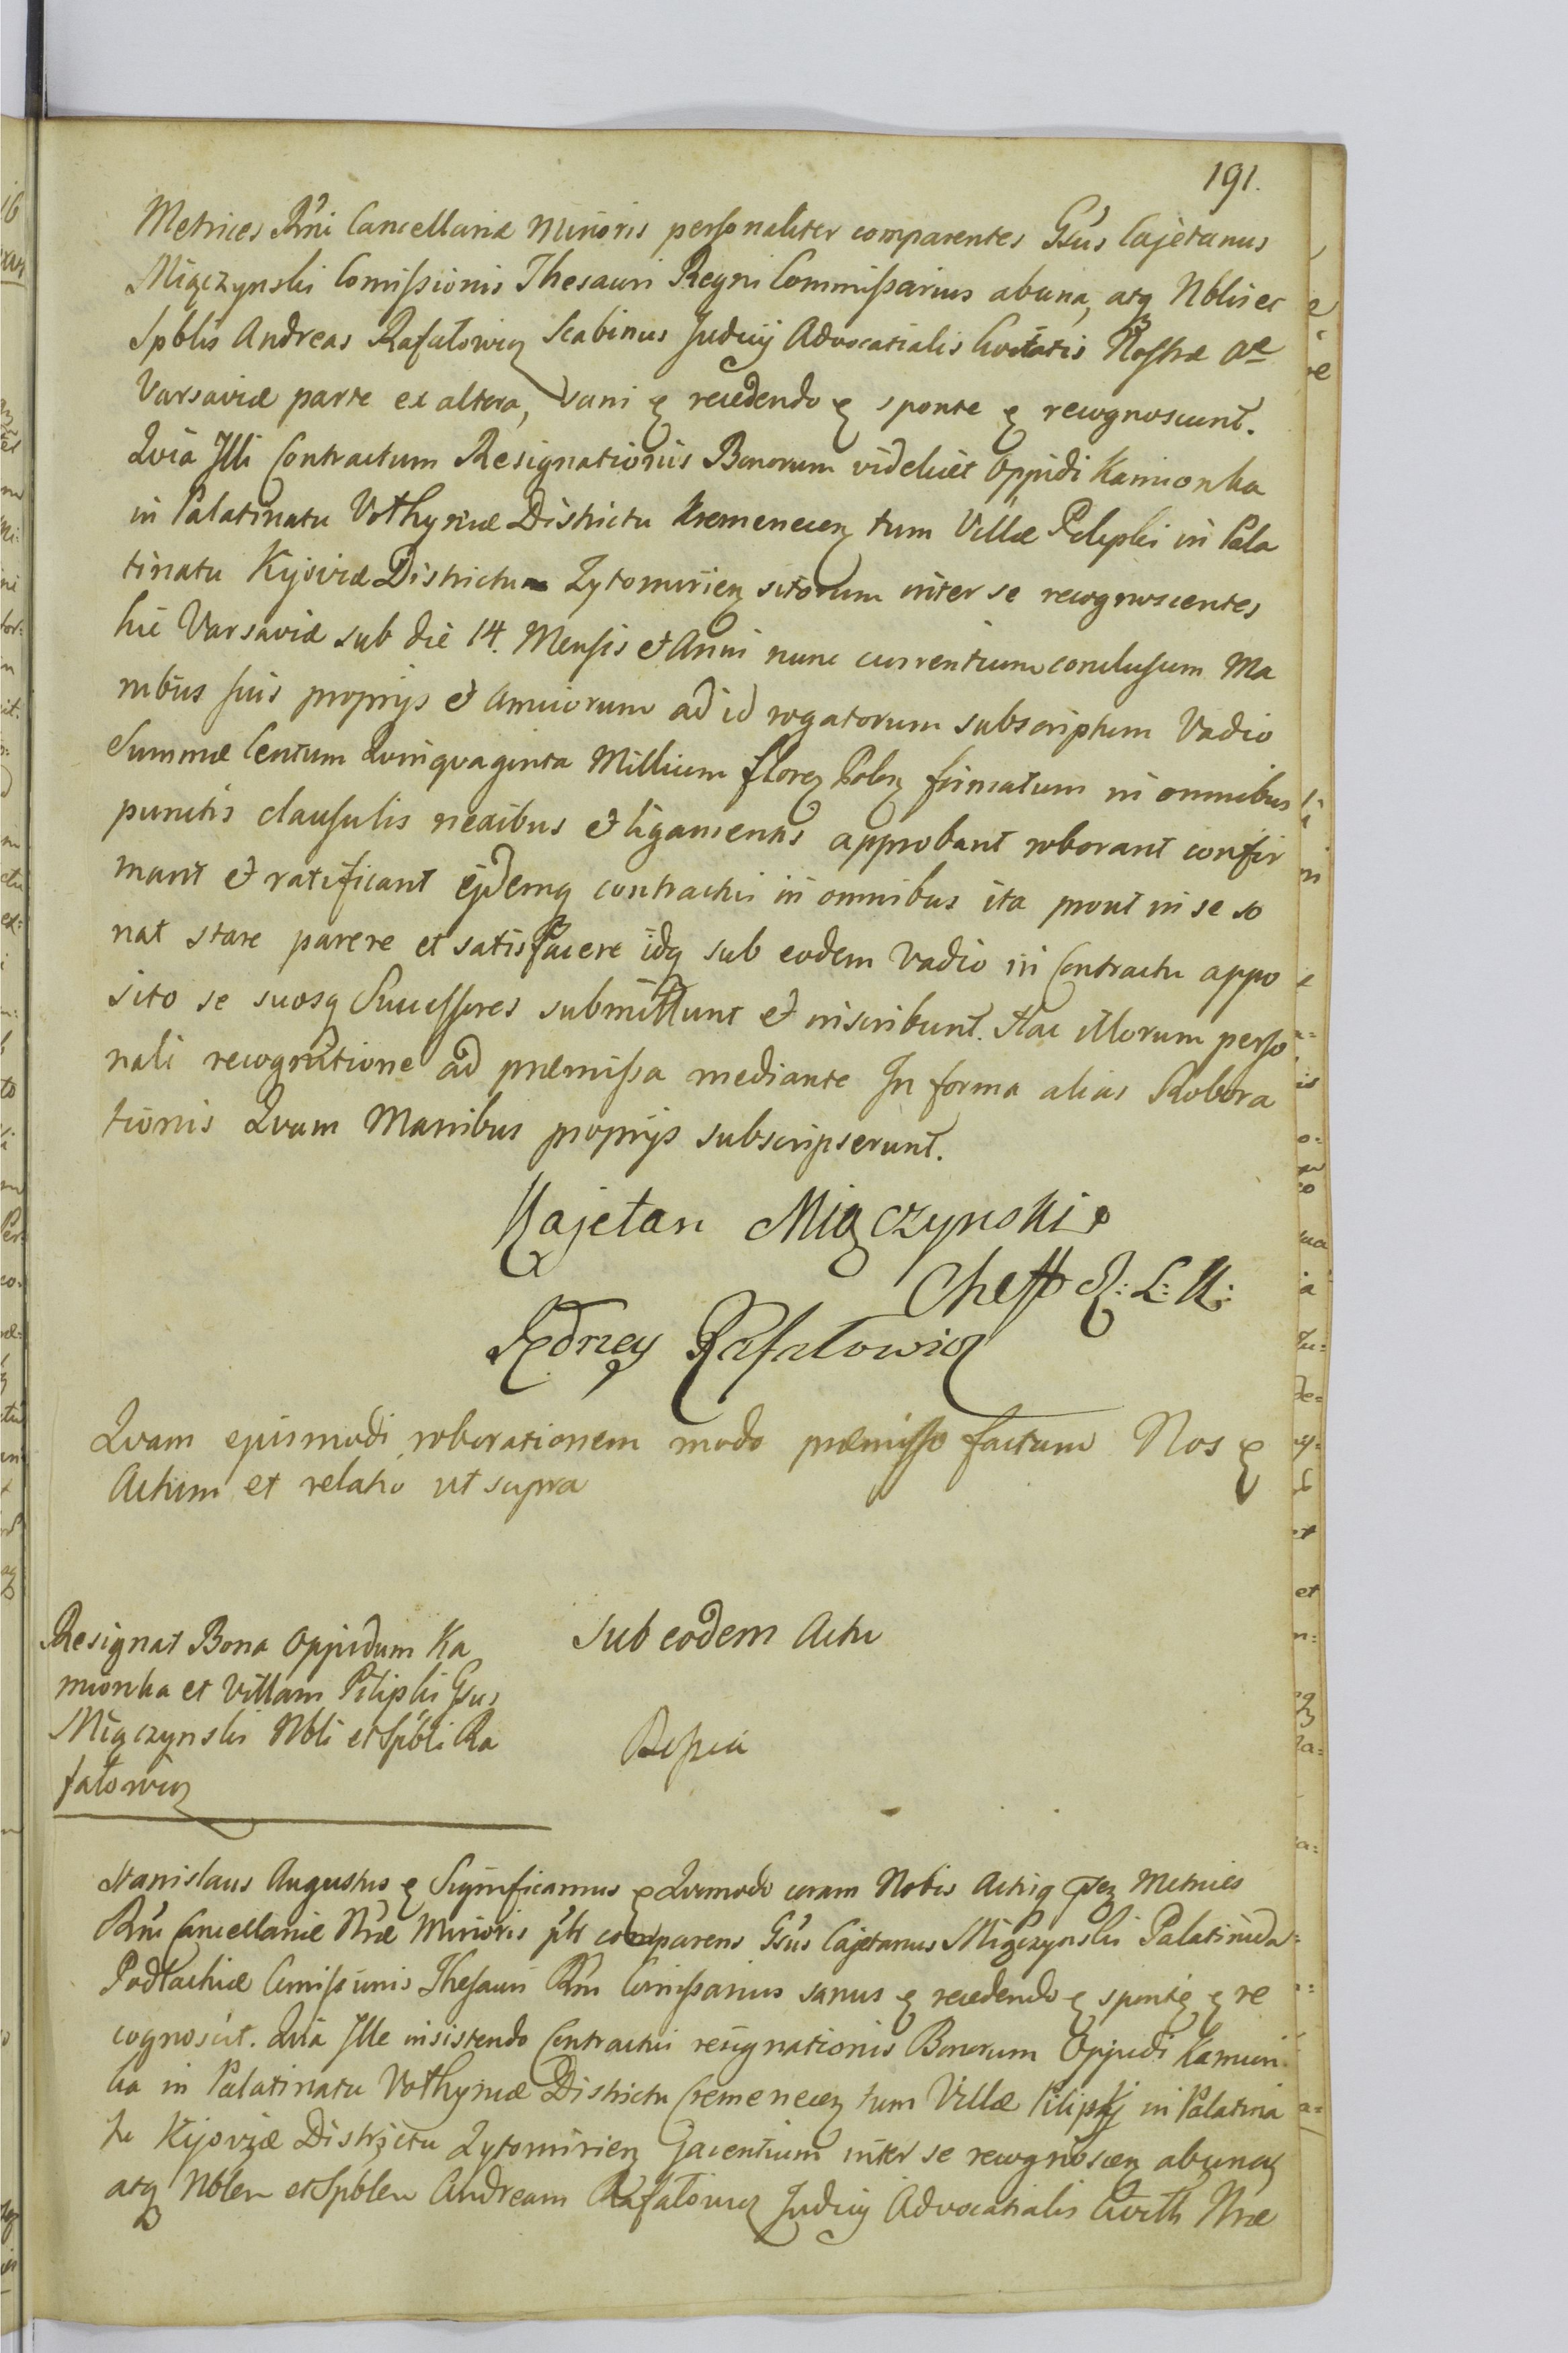 191.
Metrices Rni Cancellariæ Minoris personaliter comparentes Gsus Cajetanus
Miączynski Comissionis Thesauri Regni Commissarius ab una, atq Nblis et
Spblis Andreas Rafałowicz Scabinus Judicij Advocatialis Civitatis Nostræ
Varsaviæ parte ex altera, sani & recedendo & sponte & recognoscunt.
Quia Illi Contractum Resignationis Bonorum videlicet Oppidi Kamionka
in Palatinatu Volhyniæ Districtu Kremenecen tum Villæ Pilipki in Pala
tinatu Kijoviæ Districtu Zytomirien sitorum inter se recognoscentes
hic Varsaviæ sub die 14. Mensis et Anni nunc currentium conclusum Ma
nibus suis proprijs et Amicorum ad id rogatorum subscriptum Vadio
Summæ Centum Quinquaginta Millium floren Polon firmatum in omnibus
punctis clausulis nexibus et ligamentis approbant roborant confir
mant et ratificant ejdemq contractui in omnibus ita prout in se so
nat stare parere et satisfacere idq sub eodem Vadio in Contractu appo
sito se suosq Successores submittunt et inscribunt. Hac illorum perso
nali recognitione ad præmissa mediante In forma alias Robora
tionis Quam Manibus proprijs subscripserunt.
Kajetan Miączynski
Cheff R: L: K:
Jędrzey Rafałowicz
Quam ejusmodi roborationem modo præmisso factam Nos &
Actum et relatio ut supra
Resignat Bona Oppidum Ka
mionka et Villam Pilipki Gsus
Miączynski Nbli et Spbli Ra
fałowicz
Sub eodem Actu
Stanislaus Augustus & Significamus & Quomodo coram Nobis Actisq pntz Metrices
Rni Cancellariæ Nræ Minoris plr comparens Gsus Cajetanus Miączynski Palatinida
Podlachiæ Comissionis Thesauri Rni Comissarius sanus & recedendo & sponte & re
cognoscit. Quia Ille insistendo Contractui resignationis Bonorum Oppidi Kamion
ka in Palatinatu Volhyniæ Districtu Cremenecen tum Villæ Pilipki in Palatina
tu Kijoviæ Districtu Zytomirien Jacentium inter se recognoscen ab una
atq Nblem et Spblem Andream Rafałowicz Judicij Advocatialis Civitts Nræ